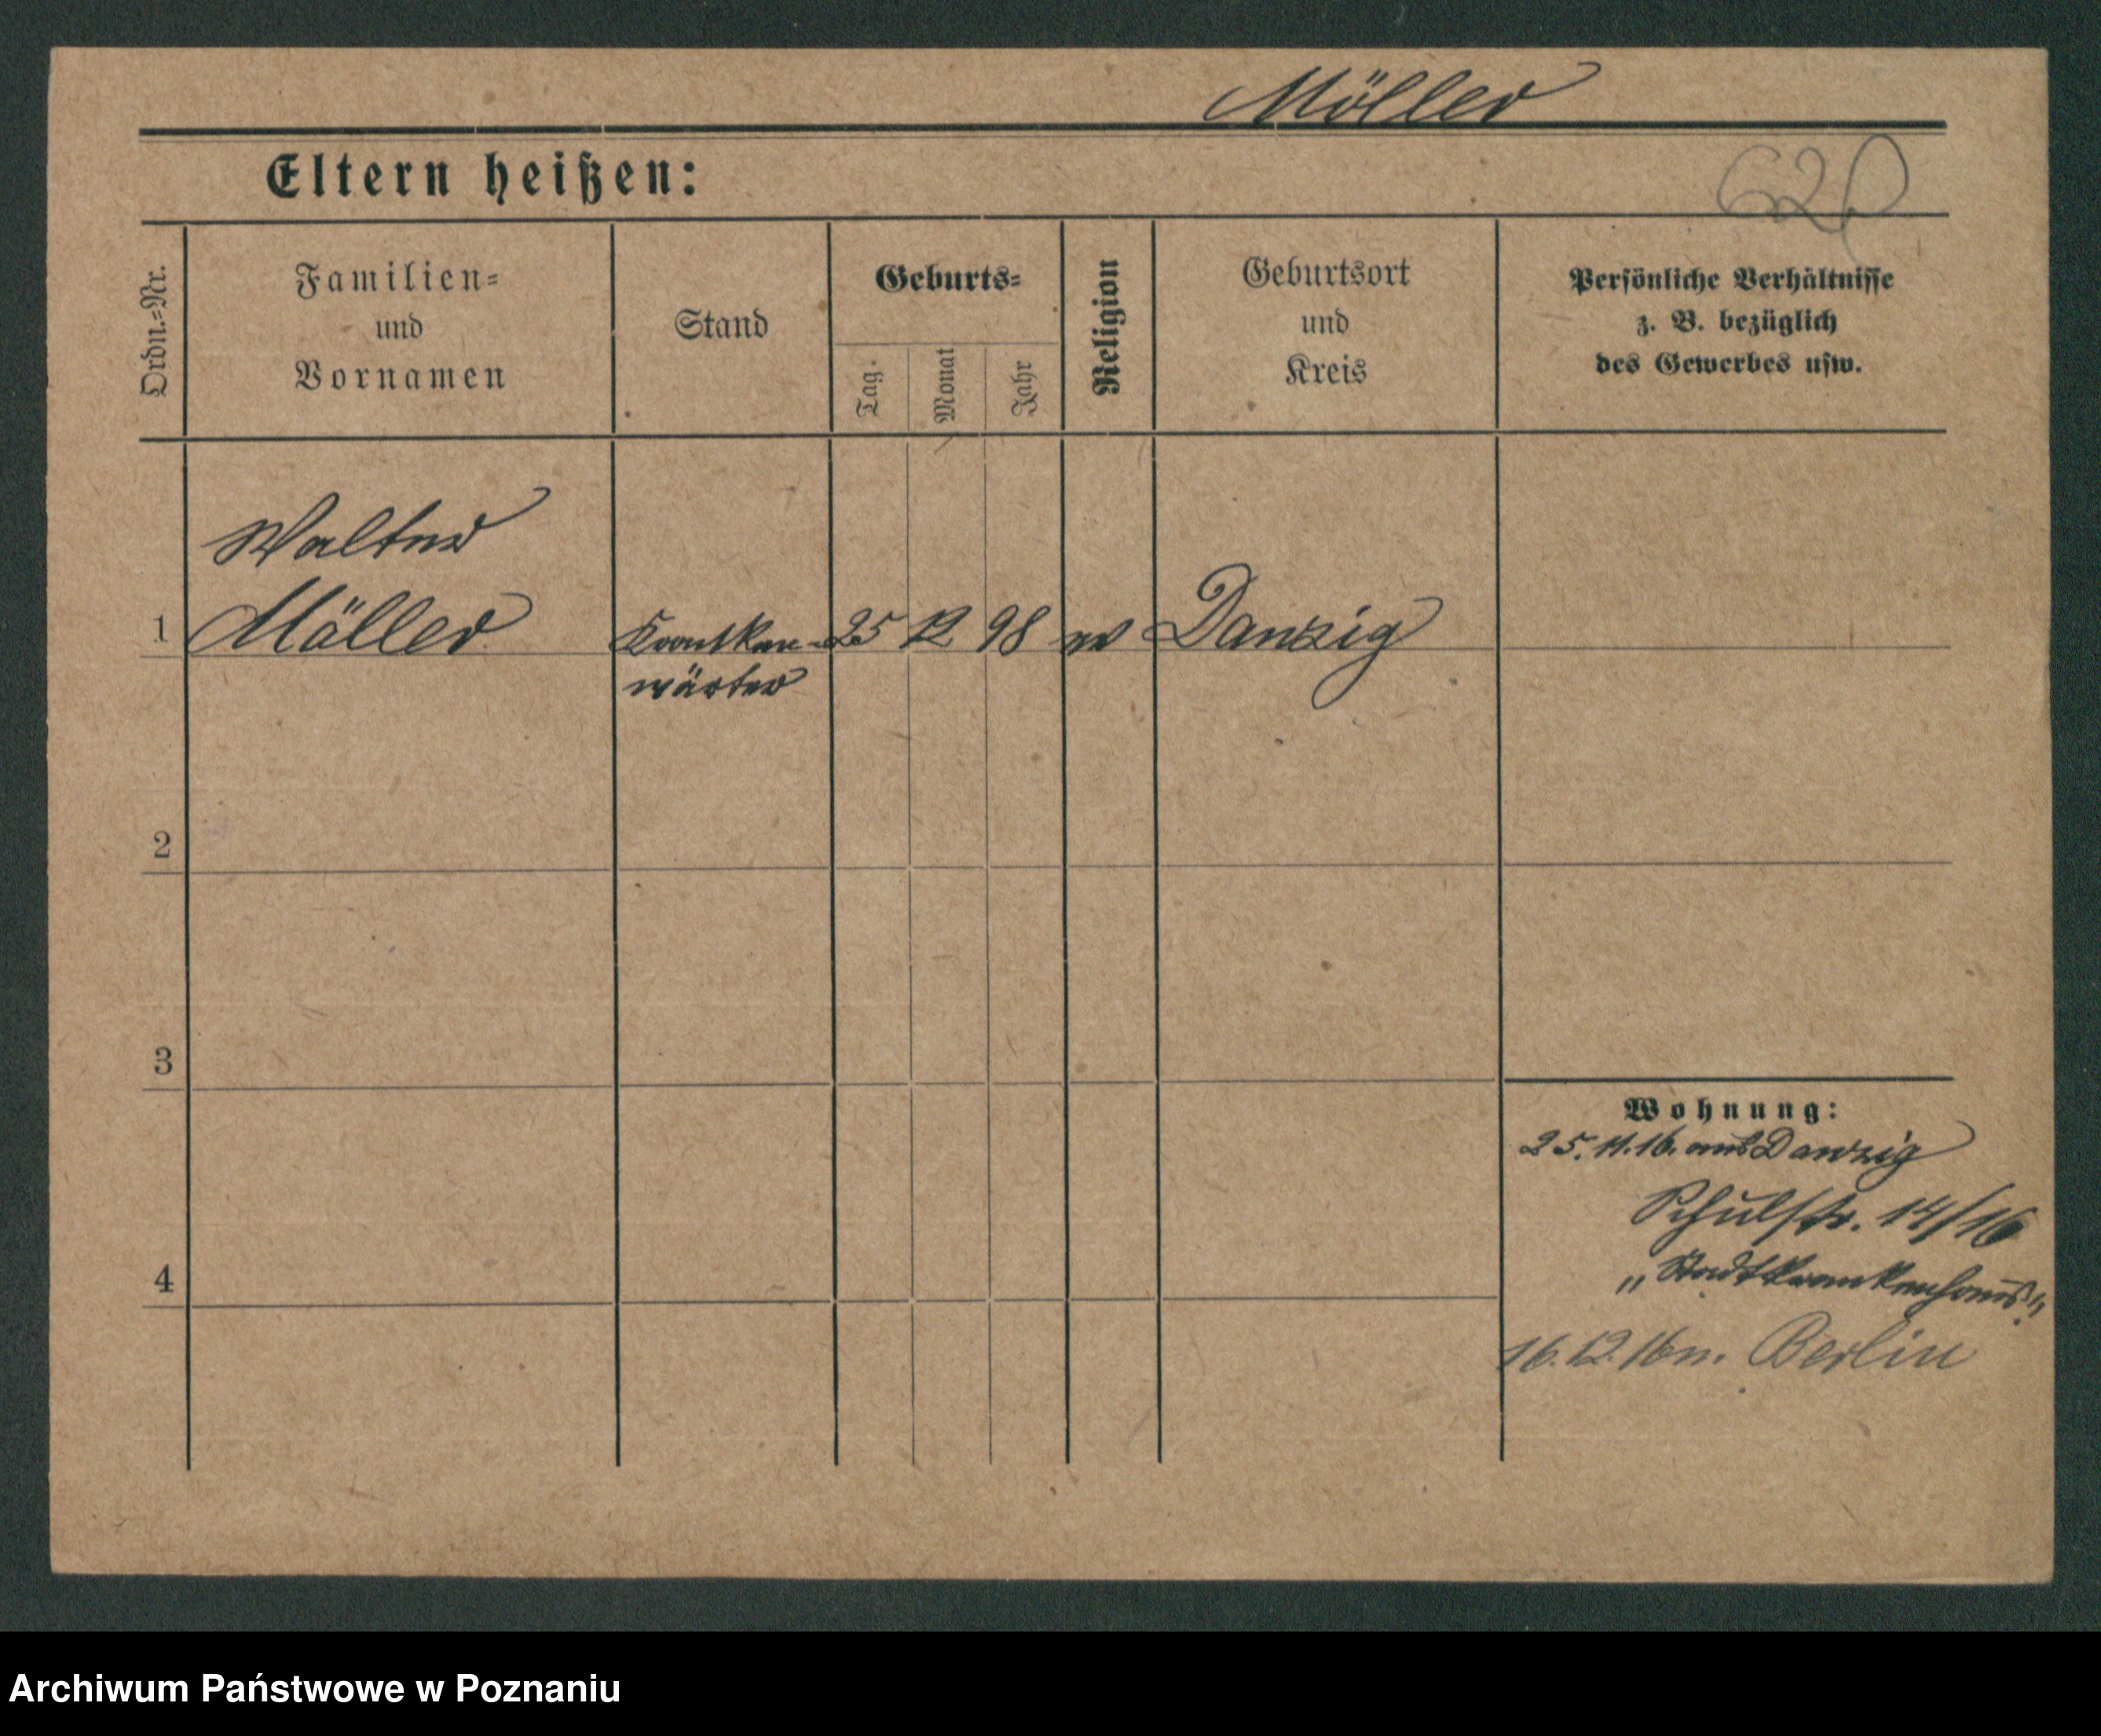 Möller
Eltern heißen:
Ordn.=Nr.
Familien=
und
Vornamen
Stand
Geburts=
Tag.
Monat
Jahr
Religion
Geburtsort
und
Kreis
Persönliche Verhältnisse
z. B. bezüglich
des Gewerbes usw.
Walter
1 Möller Kranken- 25 12 98 ev Danzig
wärter
2
3
4
Wohnung:
25.11.16. aus Danzig
Schulstr. 14/16
„Stadtkrankenhaus".
16.12.16 n. Berlin
Archiwum Państwowe w Poznaniu